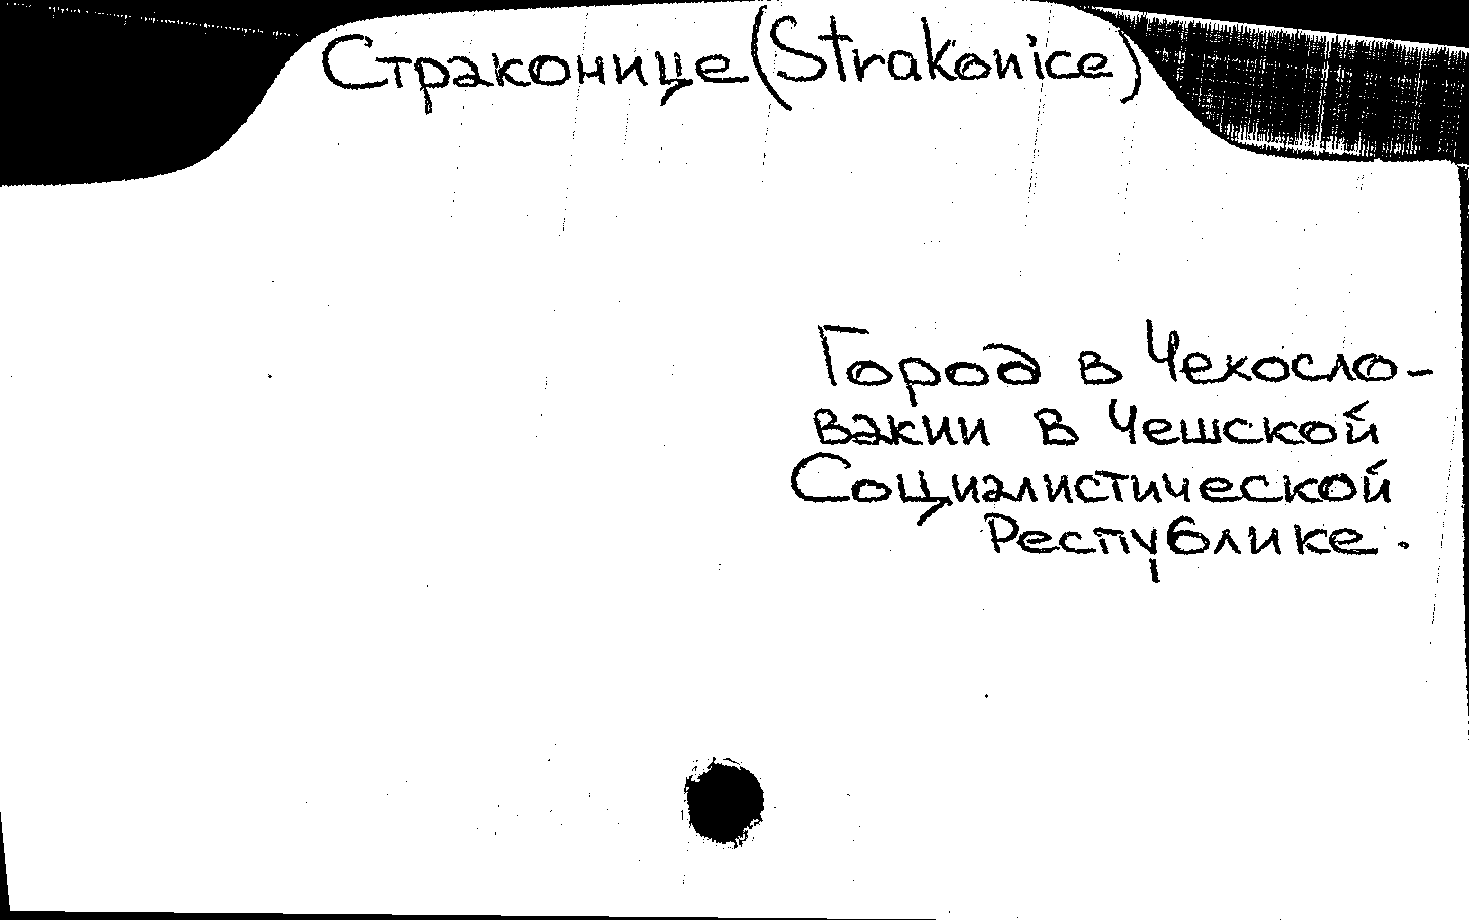 Страконице (Strakonice)
Город в Чехосло-
вакии в Чешской
Социалистической
Республике.